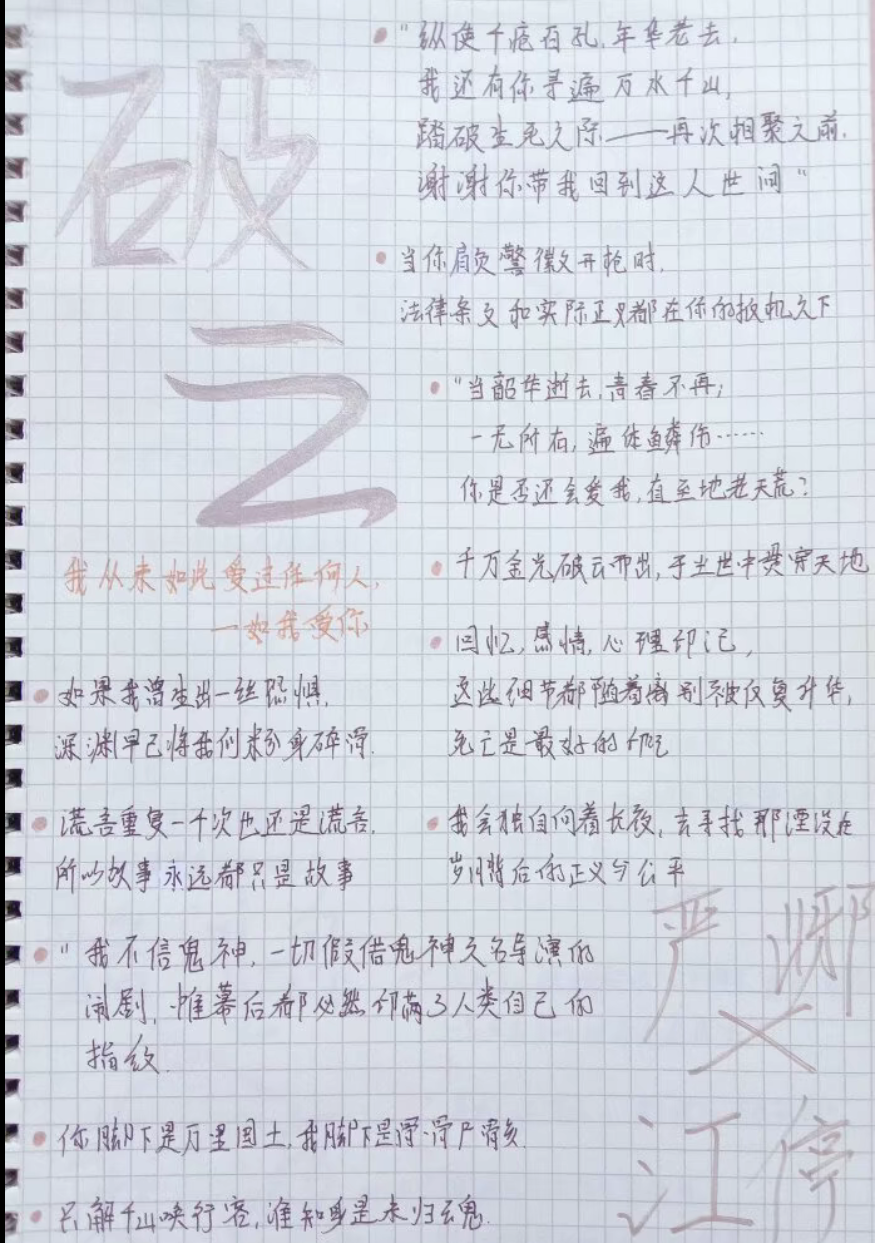 破云
"纵使千疮百孔,年华老去,
我还有你寻遍万水千山,
踏破生死之际——再次相聚之前,
谢谢你带我回到这人世间"
当你肩负警徽开枪时,
法律条文和实际正义都在你的扳机之下
"当韶华逝去,青春不再;
一无所有,遍体鳞伤……
你是否还会爱我,直至地老天荒?
千万金光破云而出,于尘世中贯穿天地
回忆,感情,心理印记,
这些细节都随着离别被反复升华,
死亡是最好的
我会独自向着长夜,去寻找那湮没在
岁月背后的正义与公平
我从未如此爱过任何人,
一如我爱你
如果我曾生出一丝恐惧,
深渊早已将我们粉身碎骨.
谎言重复一千次也还是谎言,
所以故事永远都只是故事
"我不信鬼神,一切假借鬼神之名导演的
闹剧,帷幕后都必然印满了人类自己的
指纹.
你脚下是万里国土,我脚下是
只解千山唤行客,谁知身是未归魂.
严峫
×
江停